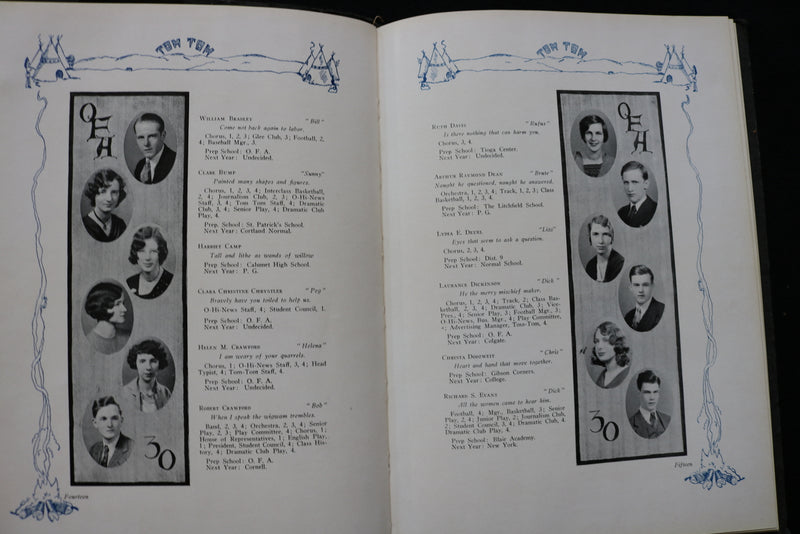 TOM TOM
OFA
30
WILLIAM BEASLEY "Bill"
Come not back again to labor.
Chorus, 1, 2, 3; Glee Club, 3; Football, 2,
4; Baseball Mgr., 3.
Prep School: O. F. A.
Next Year: Undecided.
CLARE BUMP "Sunny"
Painted many shapes and figures.
Chorus, 1, 2, 3, 4; Interclass Basketball,
2, 4; Journalism Club, 2, 3; O-Hi-News
Staff, 3, 4; Tom Tom Staff, 4; Dramatic
Club, 3, 4; Senior Play, 4; Dramatic Club
Play, 4.
Prep School: St. Patrick's School.
Next Year: Cortland Normal.
HARRIET CAMP
Tall and lithe as wands of willow
Prep School: Calumet High School.
Next Year: P. G.
CLARA CHRISTINE CHRYSTLER "Peg"
Bravely have you toiled to help us.
O-Hi-News Staff, 4; Student Council, 1.
Prep School: O. F. A.
Next Year: Undecided.
HELEN M. CRAWFORD "Helena"
I am weary of your quarrels.
Chorus, 1; O-Hi-News Staff, 3, 4; Head
Typist, 4; Tom-Tom Staff, 4.
Prep School: O. F. A.
Next Year: Undecided.
ROBERT CRAWFORD "Bob"
When I speak the wigwam trembles.
Band, 2, 3, 4; Orchestra, 2, 3, 4; Senior
Play, 2, 3; Play Committee, 4; Chorus, 1;
House of Representatives, 1; English Play,
1; President, Student Council, 4; Class His-
tory, 4; Dramatic Club Play, 4.
Prep School: O. F. A.
Next Year: Cornell.
Fourteen
TOM TOM
RUTH DAVIS "Rufus"
Is there nothing that can harm you.
Chorus, 3, 4.
Prep School: Tioga Center.
Next Year: Undecided.
ARTHUR RAYMOND DEAN "Brute"
Naught he questioned, naught he answered.
Orchestra, 1, 2, 3, 4; Track, 1, 2, 3; Class
Basketball, 1, 2, 3, 4.
Prep School: The Litchfield School.
Next Year: P. G.
LYDIA E. DEERL "Lizz"
Eyes that seem to ask a question.
Chorus, 2, 3, 4.
Prep School: Dist. 9
Next Year: Normal School.
LAURANCE DICKINSON "Dick"
He the merry mischief maker.
Chorus, 1, 2, 3, 4; Track, 2; Class Bas-
ketball, 2, 3, 4; Dramatic Club, 3; Vice-
Pres., 4; Senior Play, 3; Football Mgr., 3;
O-Hi-News, Bus. Mgr., 4; Play Committee,
Advertising Manager, Tom-Tom, 4.
Prep School: O. F. A.
Next Year: Colgate.
CHRISTA DINGWEIT "Chris"
Heart and hand that move together.
Prep School: Gibson Corners.
Next Year: College.
RICHARD S. EVANS "Dick"
All the women came to hear him.
Football, 4; Mgr., Basketball, 3; Senior
Play, 2, 4; Junior Play, 2; Journalism Club,
2; Student Council, 3, 4; Dramatic Club, 4.
Dramatic Club Play, 4.
Prep School: Blair Academy.
Next Year: New York.
OFA
30
Fifteen